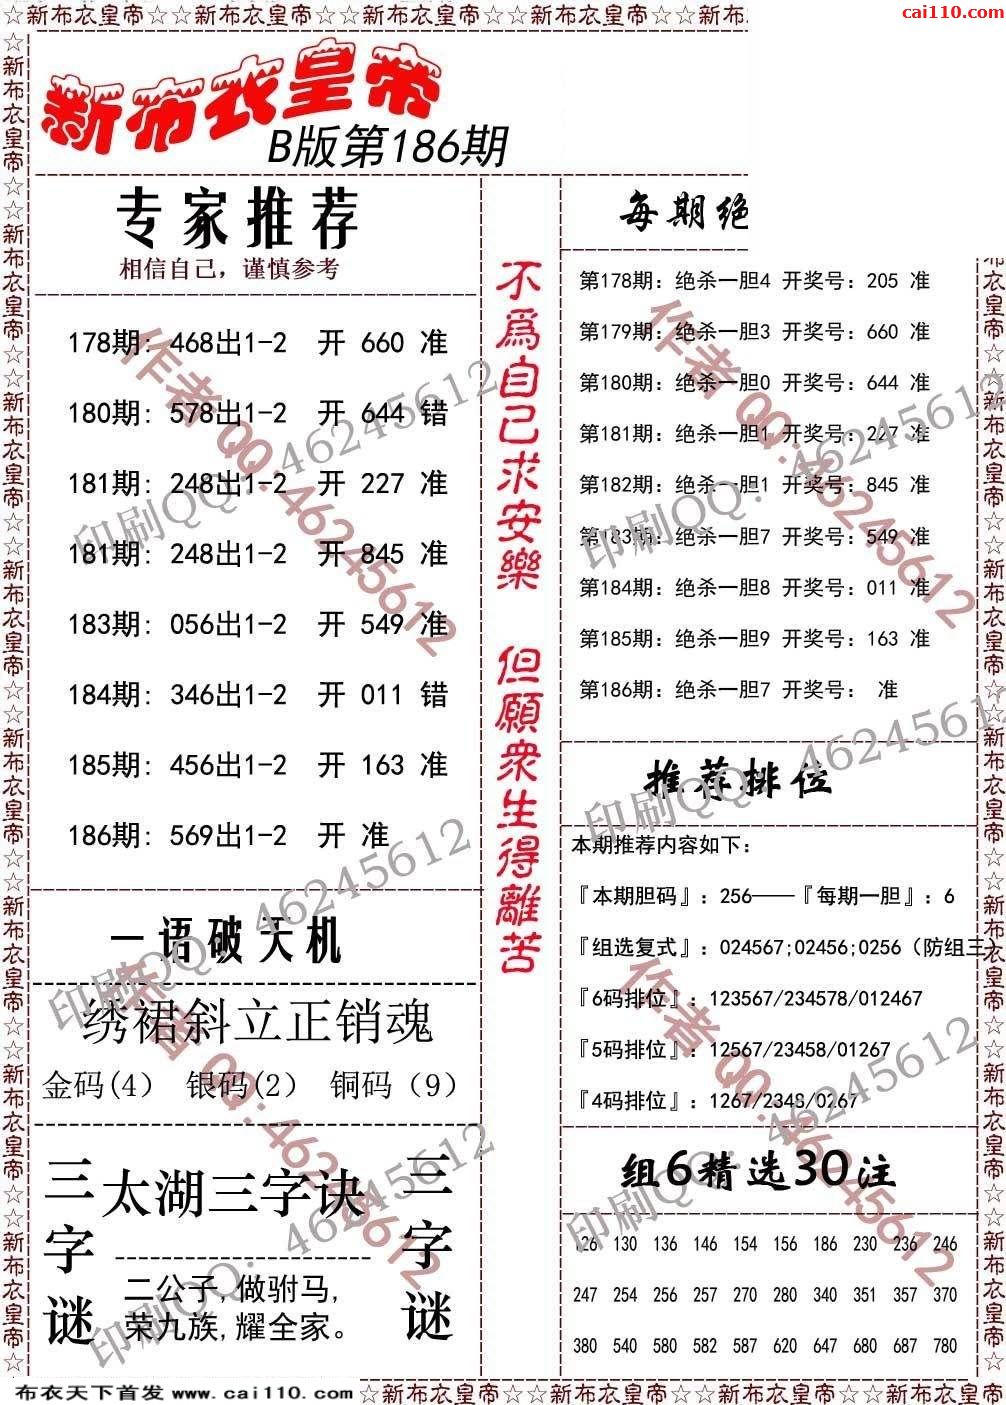 ☆新布衣皇帝☆新布衣皇帝☆新布衣皇帝☆新布衣皇帝☆新布
cai110.com
新布衣皇帝
B版第186期
专家推荐
相信自己，谨慎参考
178期: 468出1-2 开 660 准
180期: 578出1-2 开 644 错
181期: 248出1-2 开 227 准
181期: 248出1-2 开 845 准
183期: 056出1-2 开 549 准
184期: 346出1-2 开 011 错
185期: 456出1-2 开 163 准
186期: 569出1-2 开 准
一语破天机
绣裙斜立正销魂
金码(4) 银码(2) 铜码（9）
三字谜
太湖三字诀
二公子,做驸马,
荣九族,耀全家。
三字谜
不爲自己求安樂 但願衆生得離苦
每期绝
第178期：绝杀一胆4 开奖号：205 准
第179期：绝杀一胆3 开奖号：660 准
第180期：绝杀一胆0 开奖号：644 准
第181期：绝杀一胆1 开奖号：227 准
第182期：绝杀一胆1 开奖号：845 准
第183期：绝杀一胆7 开奖号：549 准
第184期：绝杀一胆8 开奖号：011 准
第185期：绝杀一胆9 开奖号：163 准
第186期：绝杀一胆7 开奖号： 准
推荐排位
本期推荐内容如下：
『本期胆码』：256——『每期一胆』：6
『组选复式』：024567;02456;0256（防组三）
『6码排位』：123567/234578/012467
『5码排位』：12567/23458/01267
『4码排位』：1267/2348/0267
组6精选30注
126 130 136 146 154 156 186 230 236 246
247 254 256 257 270 280 340 351 357 370
380 540 580 582 587 620 647 680 687 780
作者QQ:46245612
印刷QQ：46245612
作者QQ:46245612
印刷QQ：46245612
印刷QQ：46245612
印刷QQ：46245612
作者QQ:46245612
作者QQ:46245612
印刷QQ：46245612
印刷QQ：46245612
☆新布衣皇帝☆新布衣皇帝☆新布衣皇帝☆新布衣皇帝☆新布衣皇帝☆新布衣皇帝☆新布衣皇帝☆新布衣皇帝☆
衣皇帝☆新布衣皇帝☆新布衣皇帝☆新布衣皇帝☆新布衣皇帝☆新布衣皇帝☆新布衣皇帝☆
布衣天下首发 www.cai110.com
☆新布衣皇帝☆☆新布衣皇帝☆☆新布衣皇帝☆☆新布衣皇帝☆